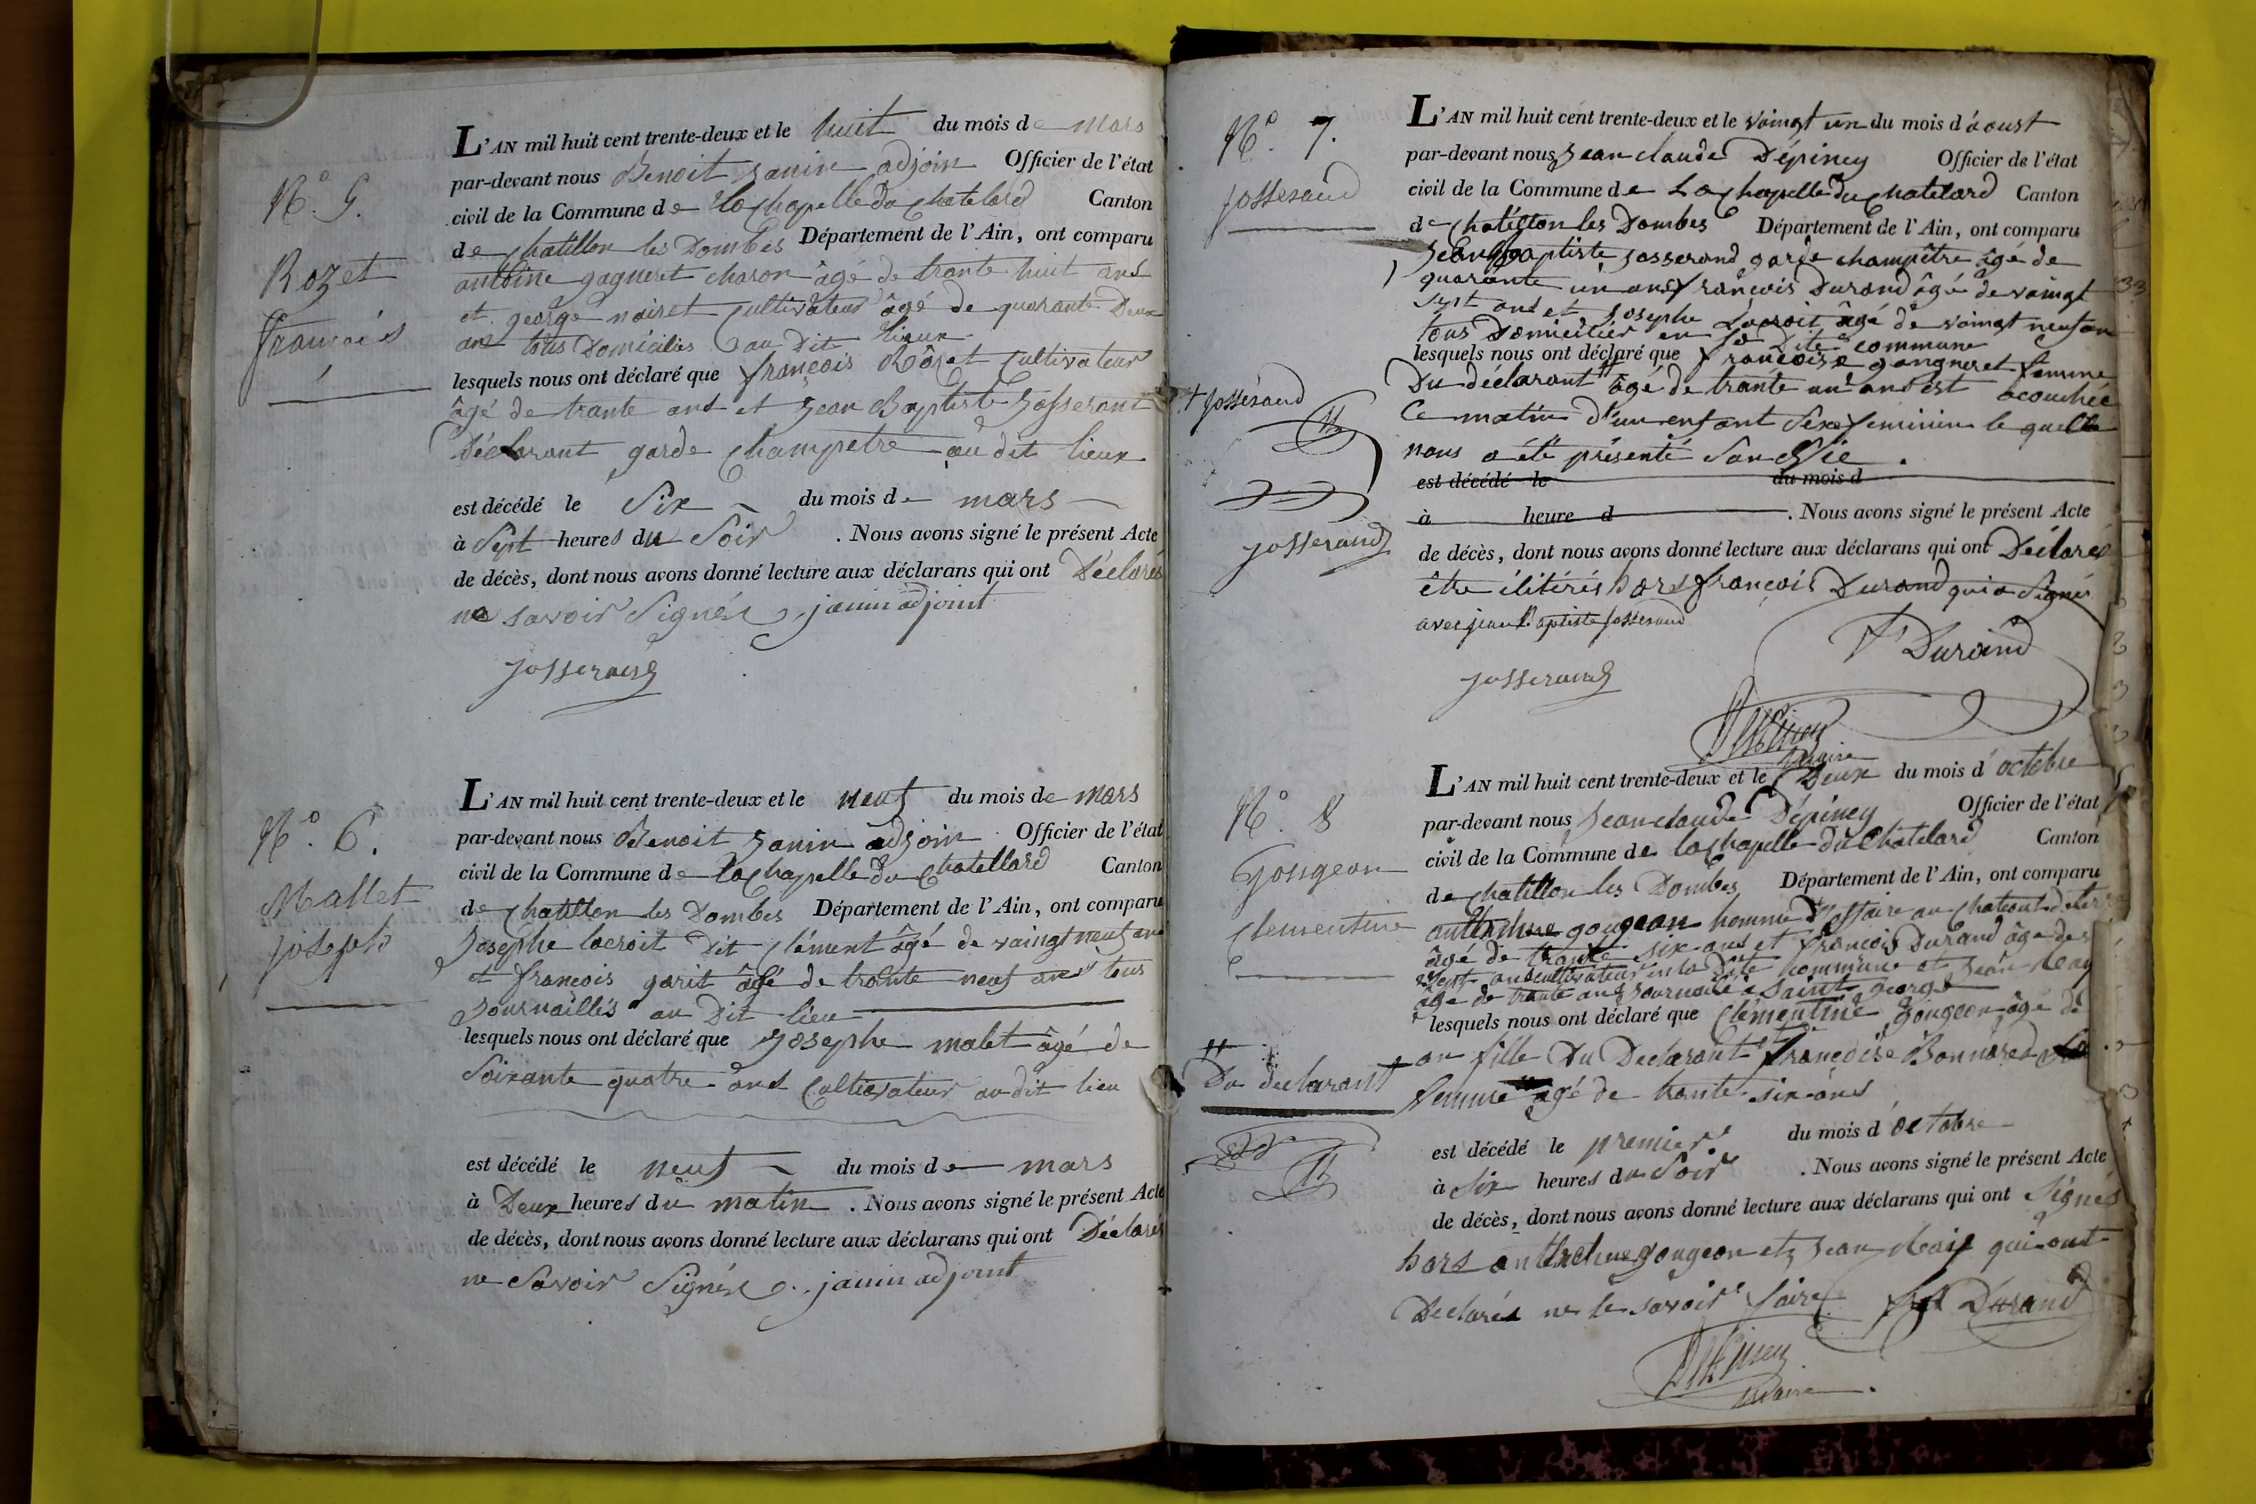 N.° 5.
Rozet
françois
L'AN mil huit cent trente-deux et le huit du mois de mars
par-devant nous Benoit Janin adjoin Officier de l'état
civil de la Commune de la Chapelle du Chatelard Canton
de Chatillon les Dombes Département de l'Ain, ont comparu
antoine gagneret charon âgé de trante huit ans
et george noiret Cultivateur âgé de quarante Deux
ans tous Domiciliés au Dit lieux
lesquels nous ont déclaré que françois Rôset Cultivateur
âgé de trante ans et Jean Baptiste Josserant
Déclarant garde Champetre au dit lieux
est décédé le Six du mois de mars
à Sept heures du Soir . Nous avons signé le présent Acte
de décès, dont nous avons donné lecture aux déclarans qui ont Déclarés
ne savoir Signés janin adjoint
josserand
N.° 6.
Mallet
joseph
L'AN mil huit cent trente-deux et le neuf du mois de mars
par-devant nous Benoit Janin adjoin Officier de l'état
civil de la Commune de la Chapelle du Chatellard Canton
de Chatillon les Dombes Département de l'Ain, ont comparu
Josephe lacroit Dit Clément âgé de vaingt neuf ans
et françois garit âgé de trante neuf ans tous
Journaillés au Dit lieu
lesquels nous ont déclaré que Josephe malet âgé de
Soixante quatre ans Cultivateur au dit lieu
est décédé le neuf du mois de mars
à Deux heures du matin . Nous avons signé le présent Acte
de décès, dont nous avons donné lecture aux déclarans qui ont Déclarés
ne Savoir Signés janin adjoint
N.° 7.
josserand
L'AN mil huit cent trente-deux et le vaingt un du mois d'aoust
par-devant nous Jean claude Dépiney Officier de l'état
civil de la Commune de La Chapelle du Chatelard Canton
de Chatillon les Dombes Département de l'Ain, ont comparu
Jean Baptiste Josserand garde champêtre âgé de
quarante un ans françois Durand âgé de vaingt
sept ans et Josephe Lacroit âgé de vaingt neuf an
tous Domicilier en la Dite commune
lesquels nous ont déclaré que françoise gangneret femme
Du déclarant âgé de trante un ans est acouchée
Ce matin d'un enfant Sexe feminin le quelle
nous a été présenté San Vie .
est décédé le du mois d
à heure d . Nous avons signé le présent Acte
de décès, dont nous avons donné lecture aux déclarans qui ont Déclarés
être ilitérés hors françois Durand qui a Signés
avec jean Baptiste josserand
+ josserand
josserand
josserand
fs Durand
Dépiney
maire
N.° 8
Gougeon
Clementine
L'AN mil huit cent trente-deux et le Deux du mois d'octobre
par-devant nous Jean claude Dépiney Officier de l'état
civil de la Commune de la Chapelle du Chatelard Canton
de Chatillon les Dombes Département de l'Ain, ont comparu
anthelme gougeon homme d'affaire au Chateau
âgé de trante six ans et françois Durand âgé de
sept ans cultivateur en la Dite commune et Jean
âgé de trante ans Journalié a Saint george
lesquels nous ont déclaré que Clémentine Gougeon âgé de
an fille Du Déclarant et françoise Bonnard
femme âgé de trante six ans
Du declarant
est décédé le premier du mois d'octobre
à Six heures du Soir . Nous avons signé le présent Acte
de décès, dont nous avons donné lecture aux déclarans qui ont Signés
hors anthelme gougeon et Jean qui ont
Declarés ne le savoir faire fs Durand
Dépiney
maire